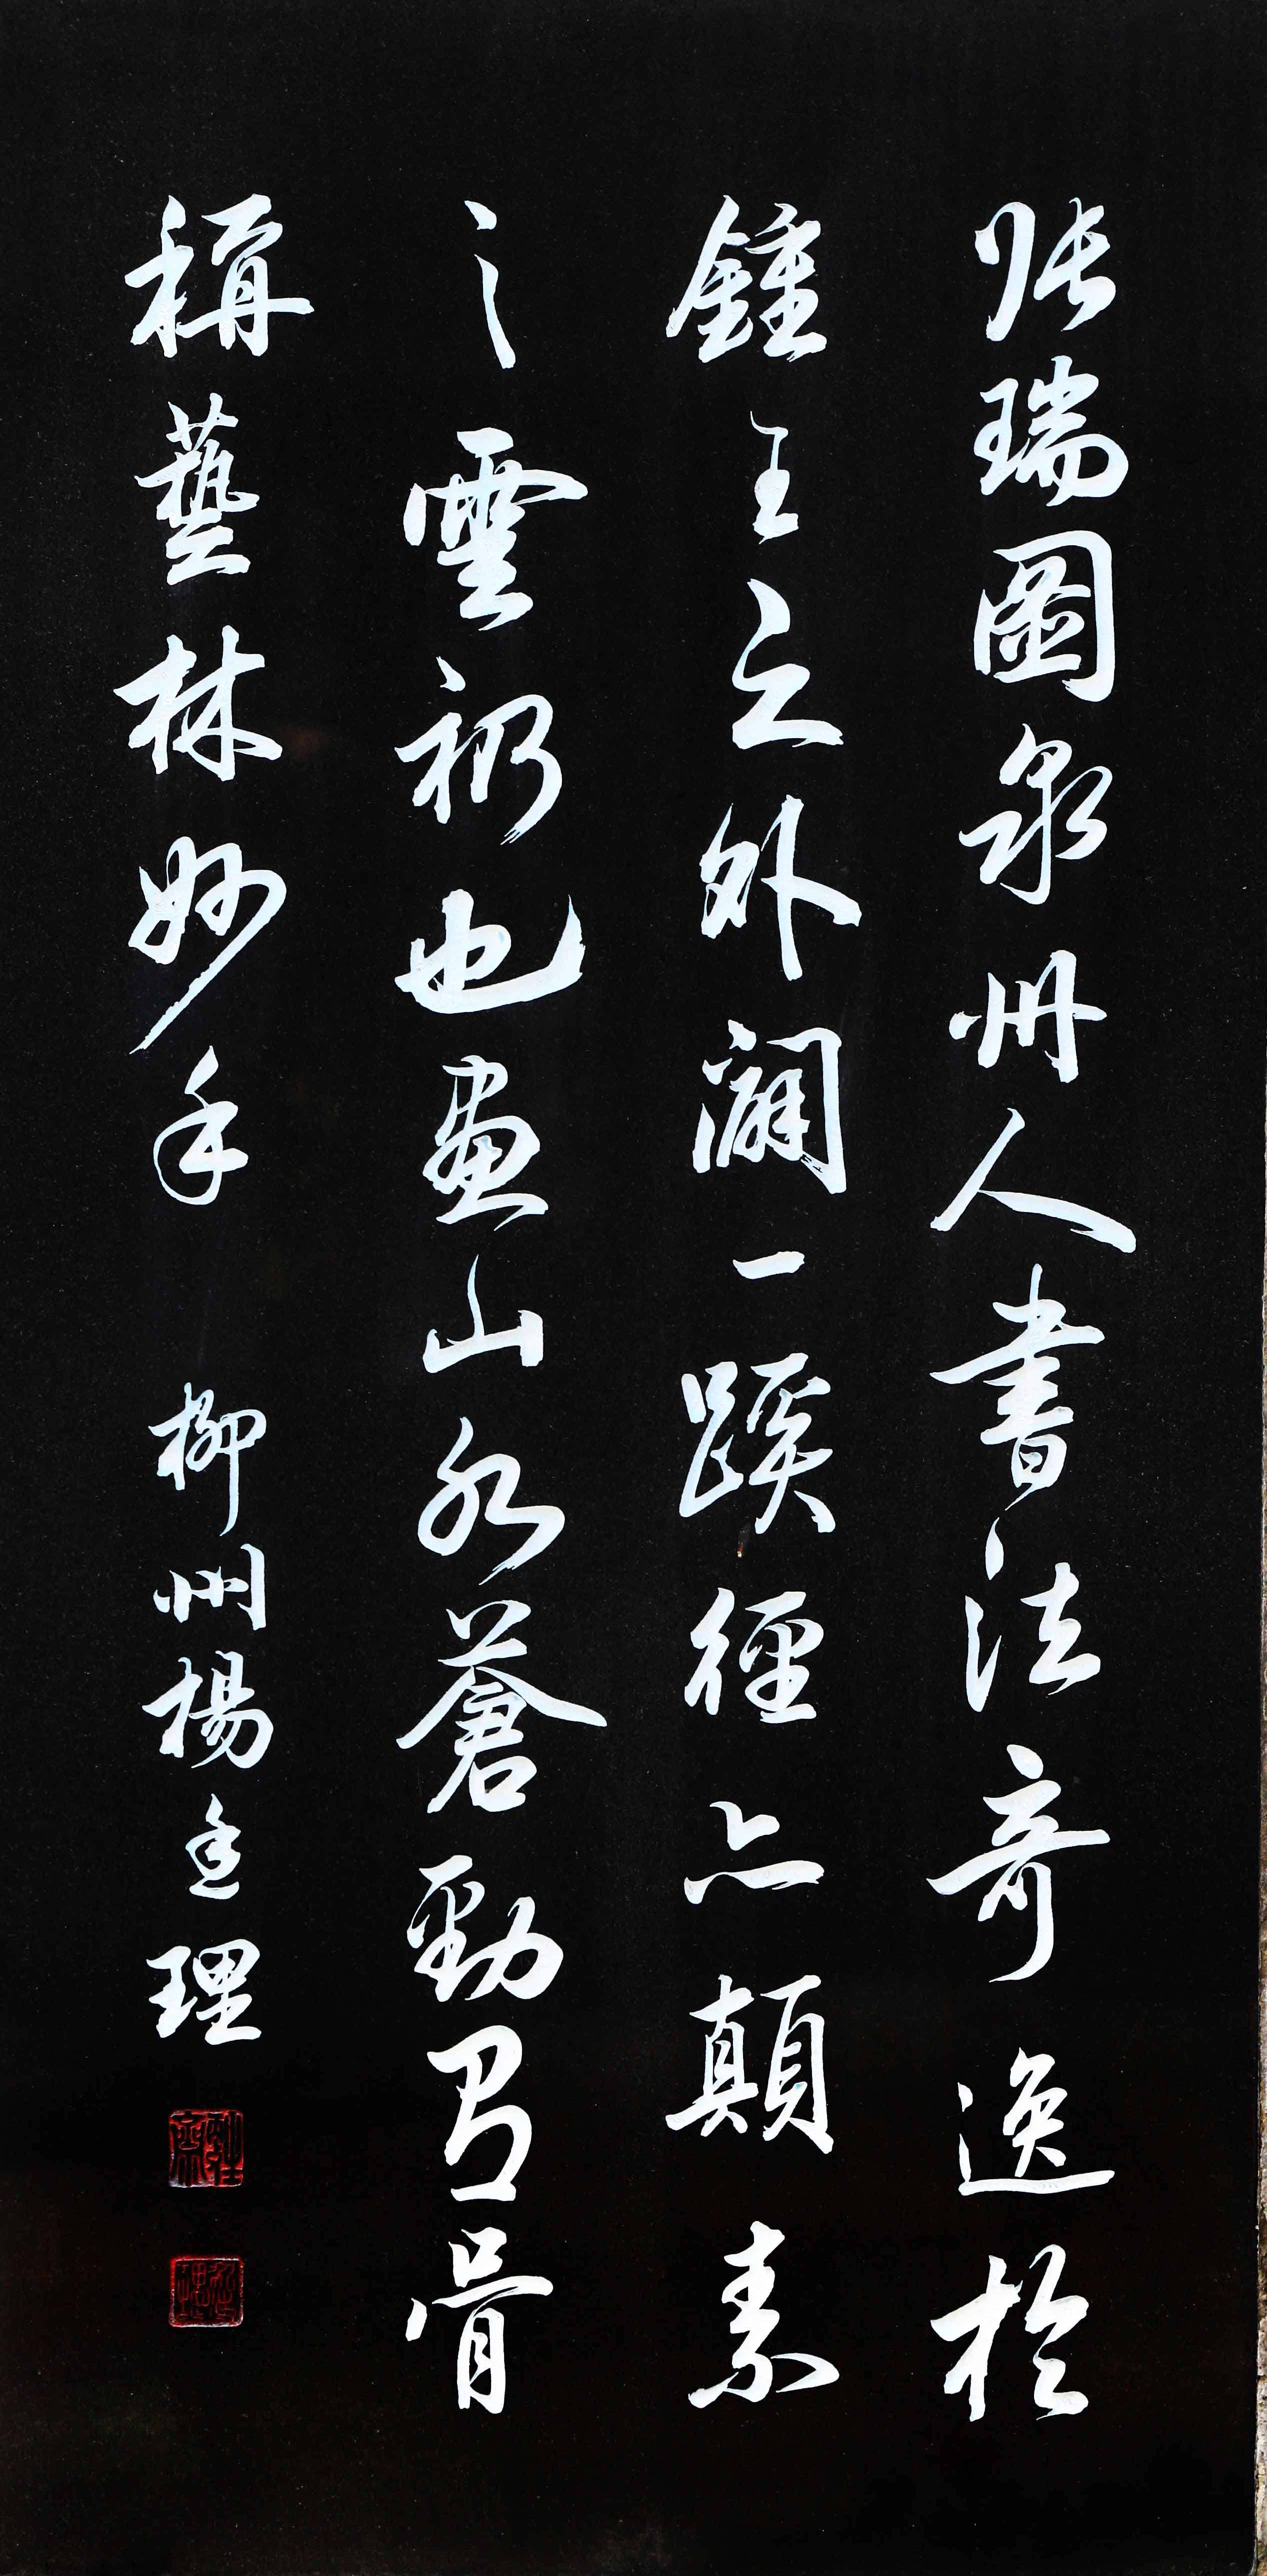 张瑞圖泉州人書法奇逸於
鍾王之外闢一蹊徑亦顛素
之雲礽也畫山水蒼勁有骨
稱藝林妙手
柳州楊廷理